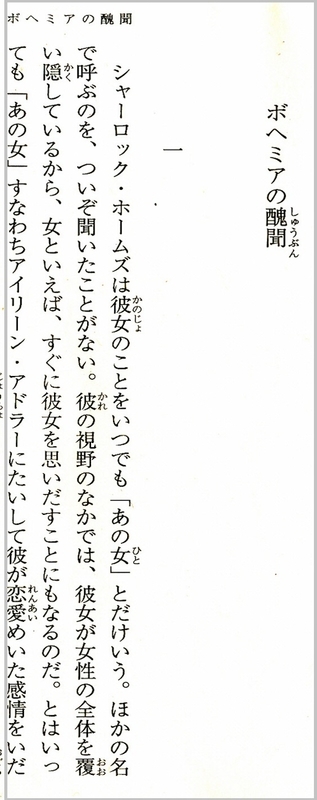 ボヘミアの醜聞
ボヘミアの醜聞
しゅうぶん
一
シャーロック・ホームズは彼女のことをいつでも「あの女」とだけいう。ほかの名
かのじょ
ひと
で呼ぶのを、ついぞ聞いたことがない。彼の視野のなかでは、彼女が女性の全体を覆
かれ
おお
い隠しているから、女といえば、すぐに彼女を思いだすことにもなるのだ。とはいっ
かく
ても「あの女」すなわちアイリーン・アドラーにたいして彼が恋愛めいた感情をいだ
れんあい